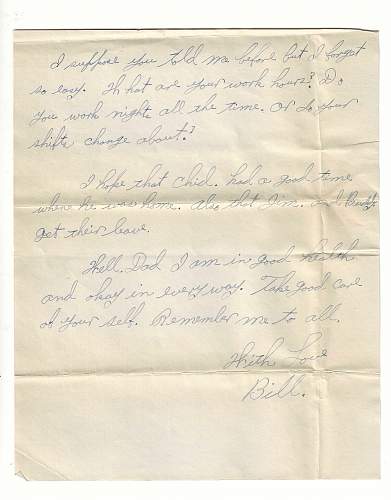 I suppose you told me before but I forget
so easy. What are your work hours? Do
you work nights all the time. Or do your
shifts change about?
I hope that Chid. had a good time
where he was home. Also that Jim. and
get their leave.
Well. Dad I am in good health
and okay in every way. Take good care
of your self. Remember me to all.
With Love
Bill.